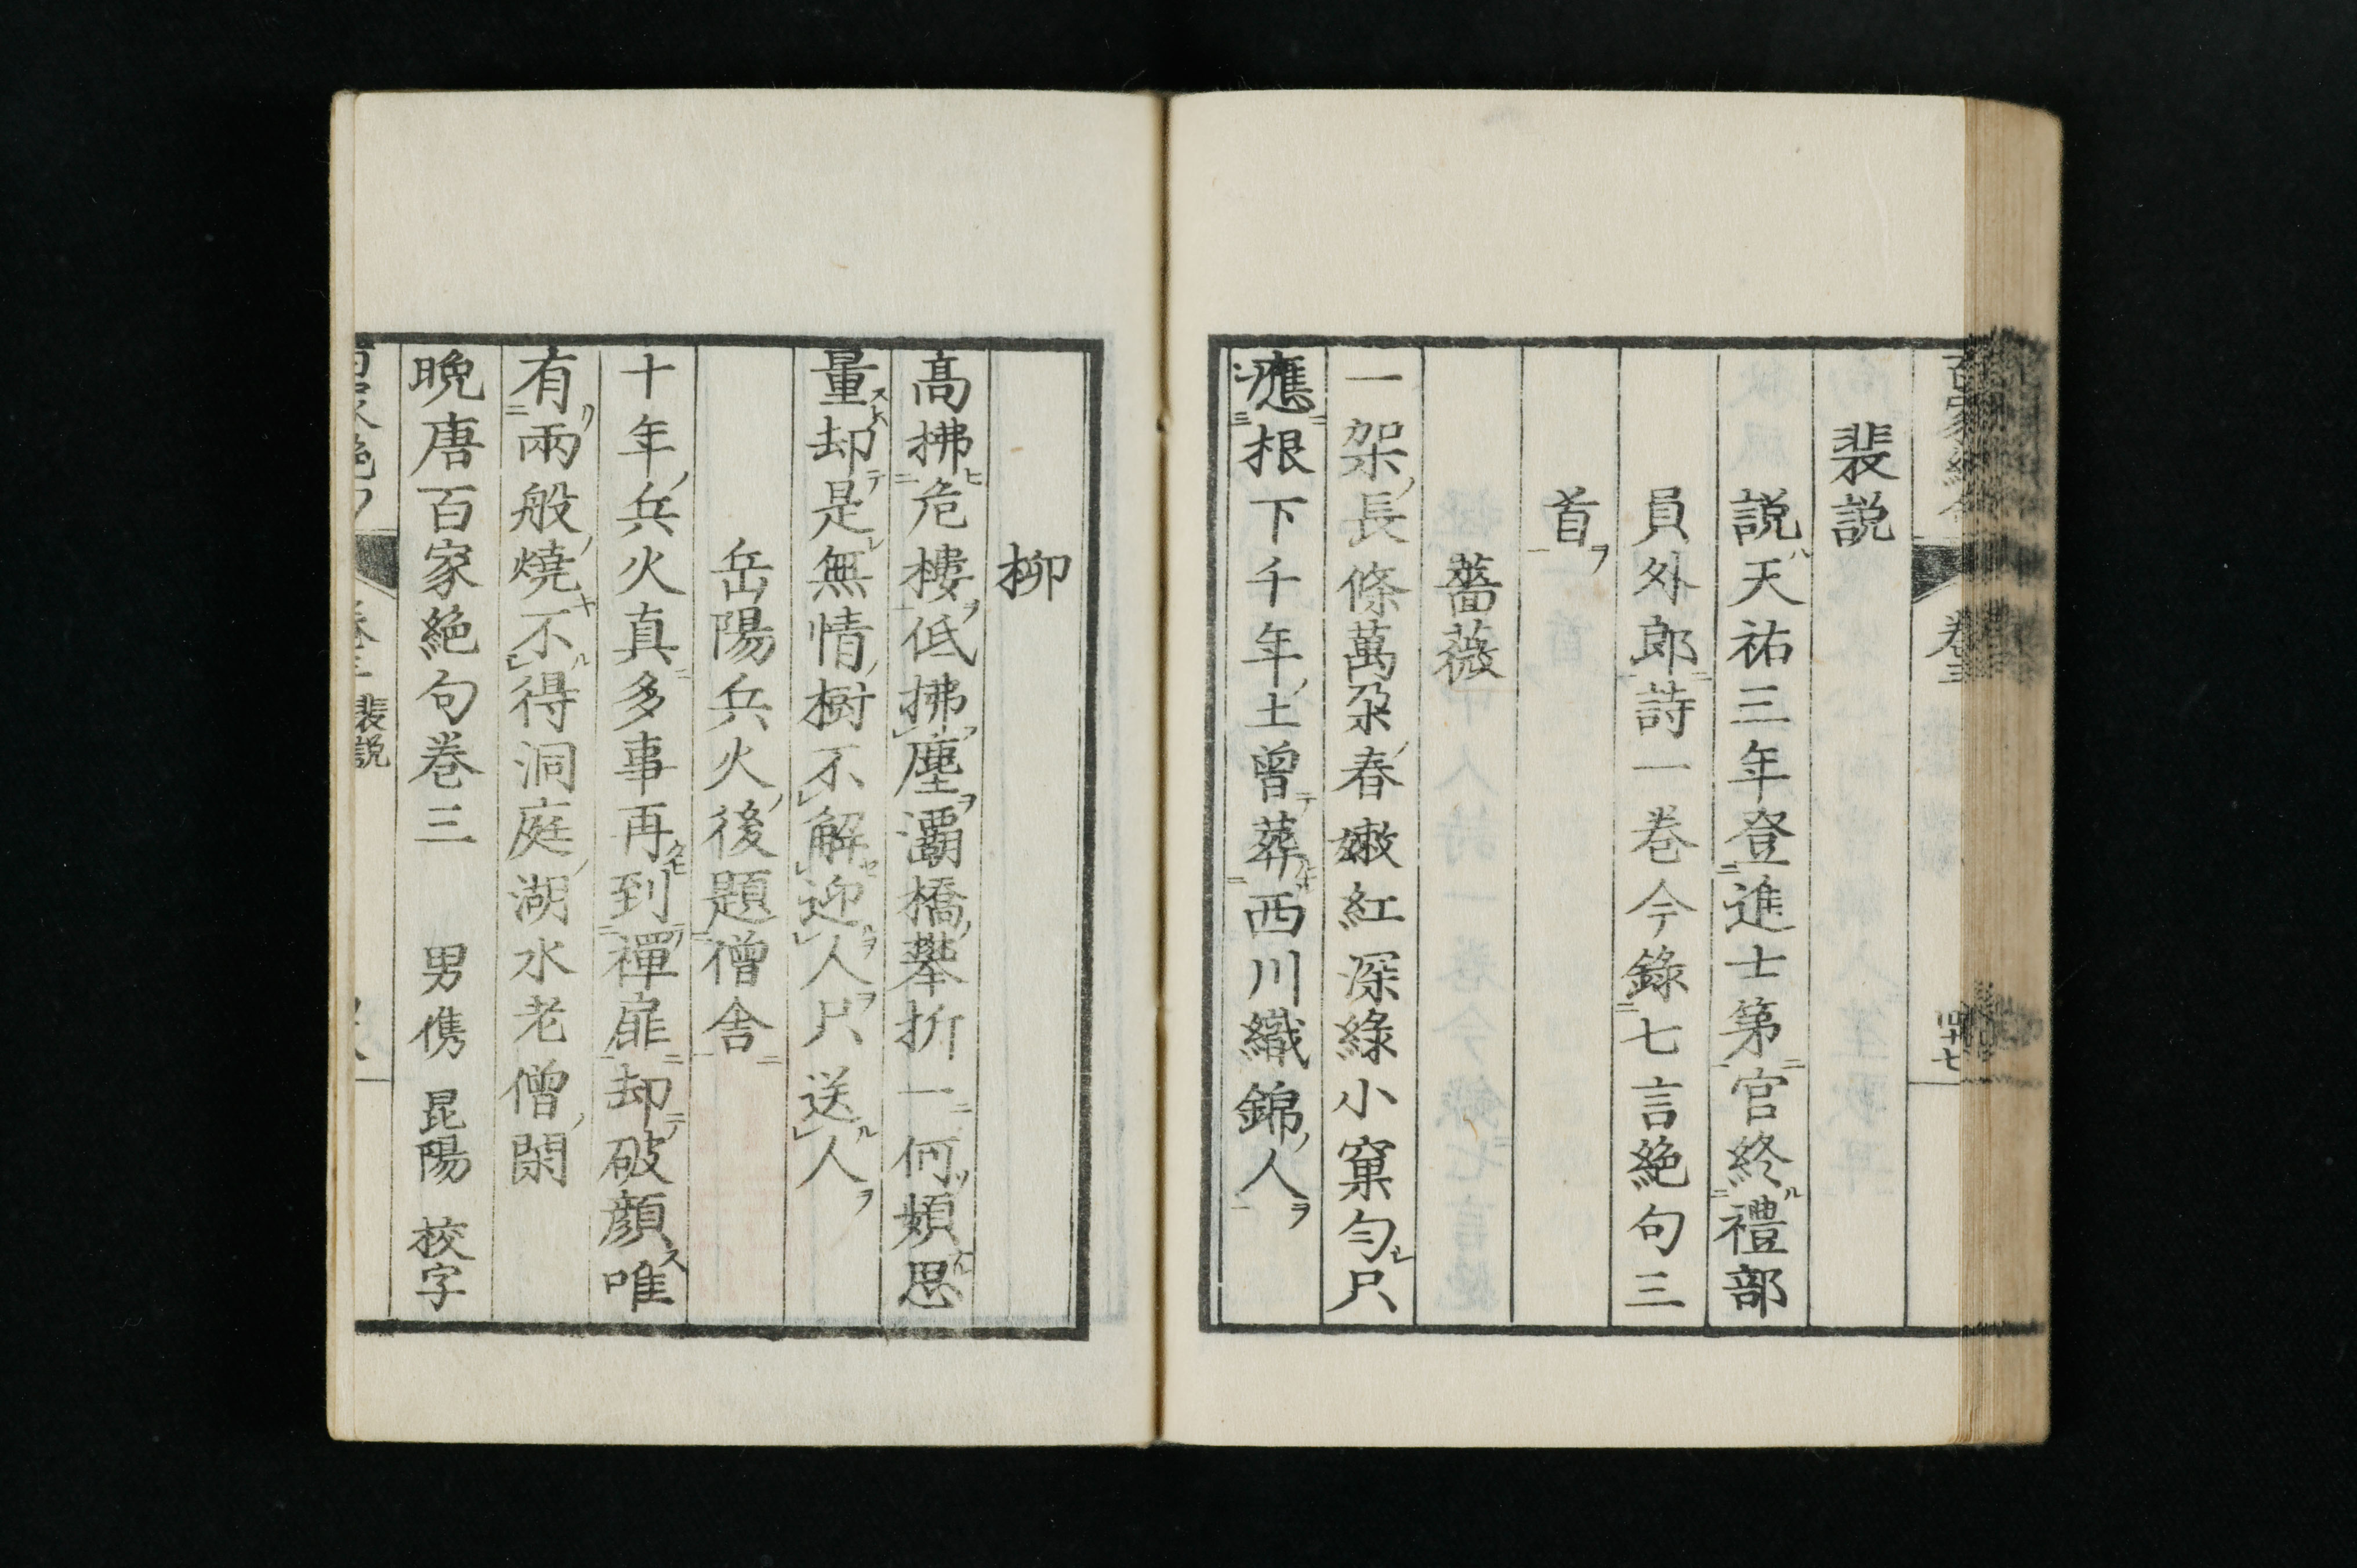 裴説
説天祐三年登進士第官終禮部
員外郎詩一巻今錄七言絶句三
首
薔薇
一架長條萬朶春嫩紅深綠小窠勻只
應根下千年土曾葬西川織錦人
柳
高拂危樓低拂塵灞橋攀折一何頻思
量却是無情樹不解迎人只送人
岳陽兵火後題僧舎
十年兵火真多事再到禪扉却破顔唯
有兩般燒不得洞庭湖水老僧閑
晩唐百家絶句巻三　男儁 昆陽 校字
裴説